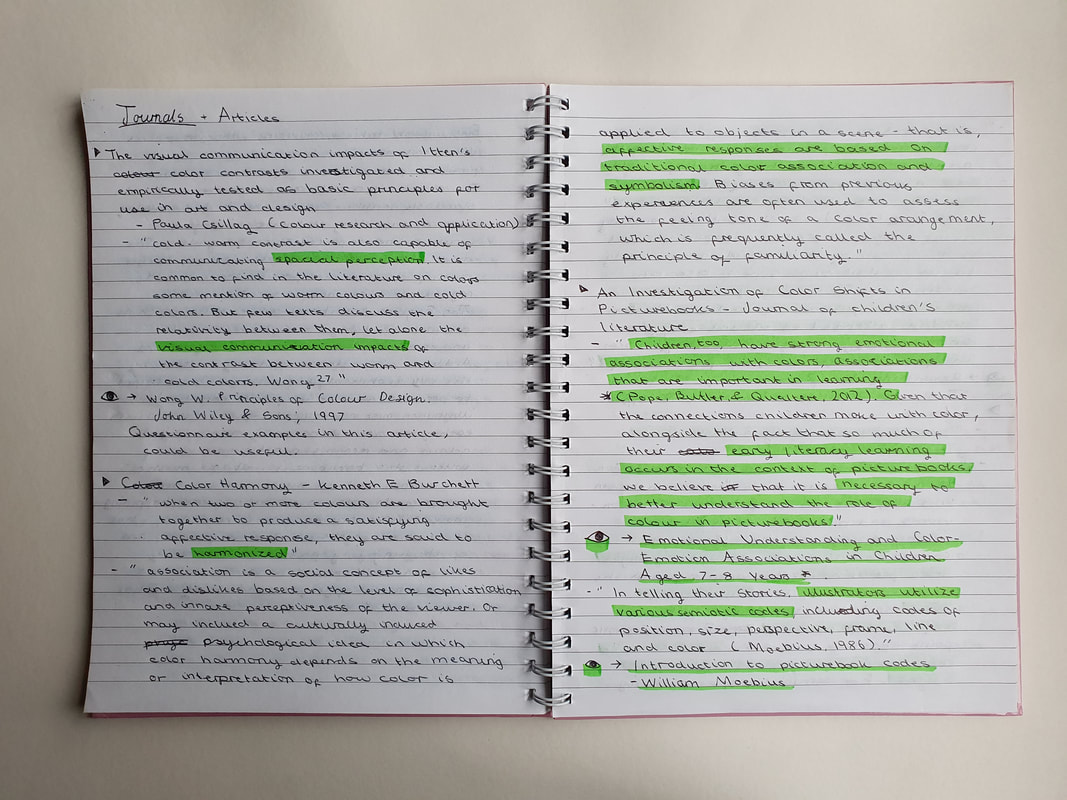 Journals + Articles
The visual communication impacts of Itten's
colour color contrasts investigated and
empirically tested as basic principles for
use in art and design
- Paula Csillag (Colour research and application)
- "cold-warm contrast is also capable of
communicating spacial perception. It is
common to find in the literature on colors
some mention of warm colours and cold
colors. But few texts discuss the
relativity between them, let alone the
visual communication impacts of
the contrast between warm and
cold colors. Wong 27"
→ Wong W. Principles of Colour Design.
John Wiley & Sons; 1997
Questionnaire examples in this article,
could be useful.
Colour Color Harmony - Kenneth E Burchett
- "when two or more colours are brought
together to produce a satisfying
affective response, they are said to
be harmonized"
- "association is a social concept of likes
and dislikes based on the level of sophistication
and innate perceptiveness of the viewer. Or
may included a culturally induced
psychological idea in which
color harmony depends on the meaning
or interpretation of how color is
applied to objects in a scene - that is,
affective responses are based on
traditional color association and
symbolism. Biases from previous
experiences are often used to assess
the feeling tone of a color arangement,
which is frequently called the
principle of familiarity."
An Investigation of Color Shifts in
Picturebooks - Journal of children's
literature
- "Children too, have strong emotional
associations with colors, associations
that are important in learning
*(Pope, Butler, & Qualter, 2012). Given that
the connections children make with color,
alongside the fact that so much of
their early literacy learning
occurs in the context of picturebooks,
we believe it that it is necessary to
better understand the role of
colour in picturebooks"
→ Emotional Understanding and Color-
Emotion Associations in Children
Aged 7-8 Years *
- "In telling their stories, illustrators utilize
various semiotic codes, including codes of
position, size, perspective, frame, line
and color (Moebius, 1986)."
→ Introduction to picturebook codes
- William Moebius